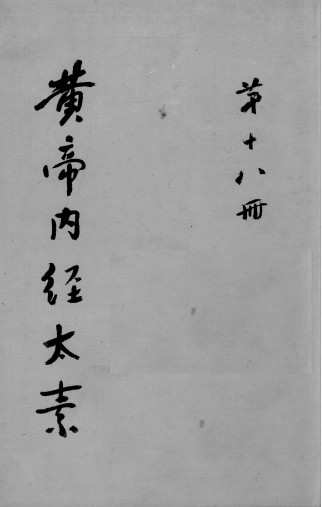 第十八冊
黄帝内経太素